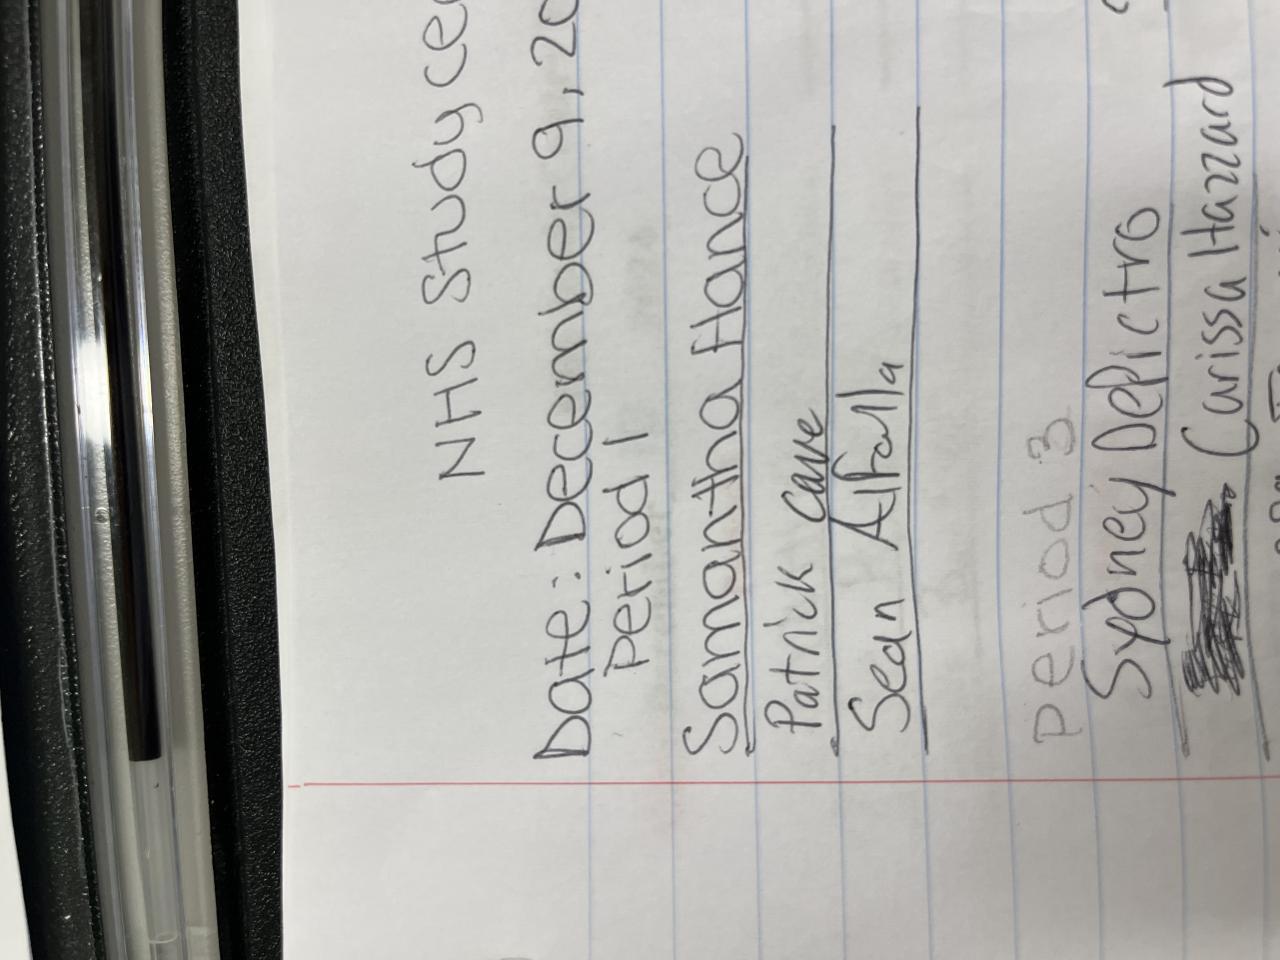 NHS Study Ce
Date: December 9, 20
Period 1
Samantha Hance
Patrick Cave
Sean Alfalla
Period 3
Sydney
Carissa Hazzard